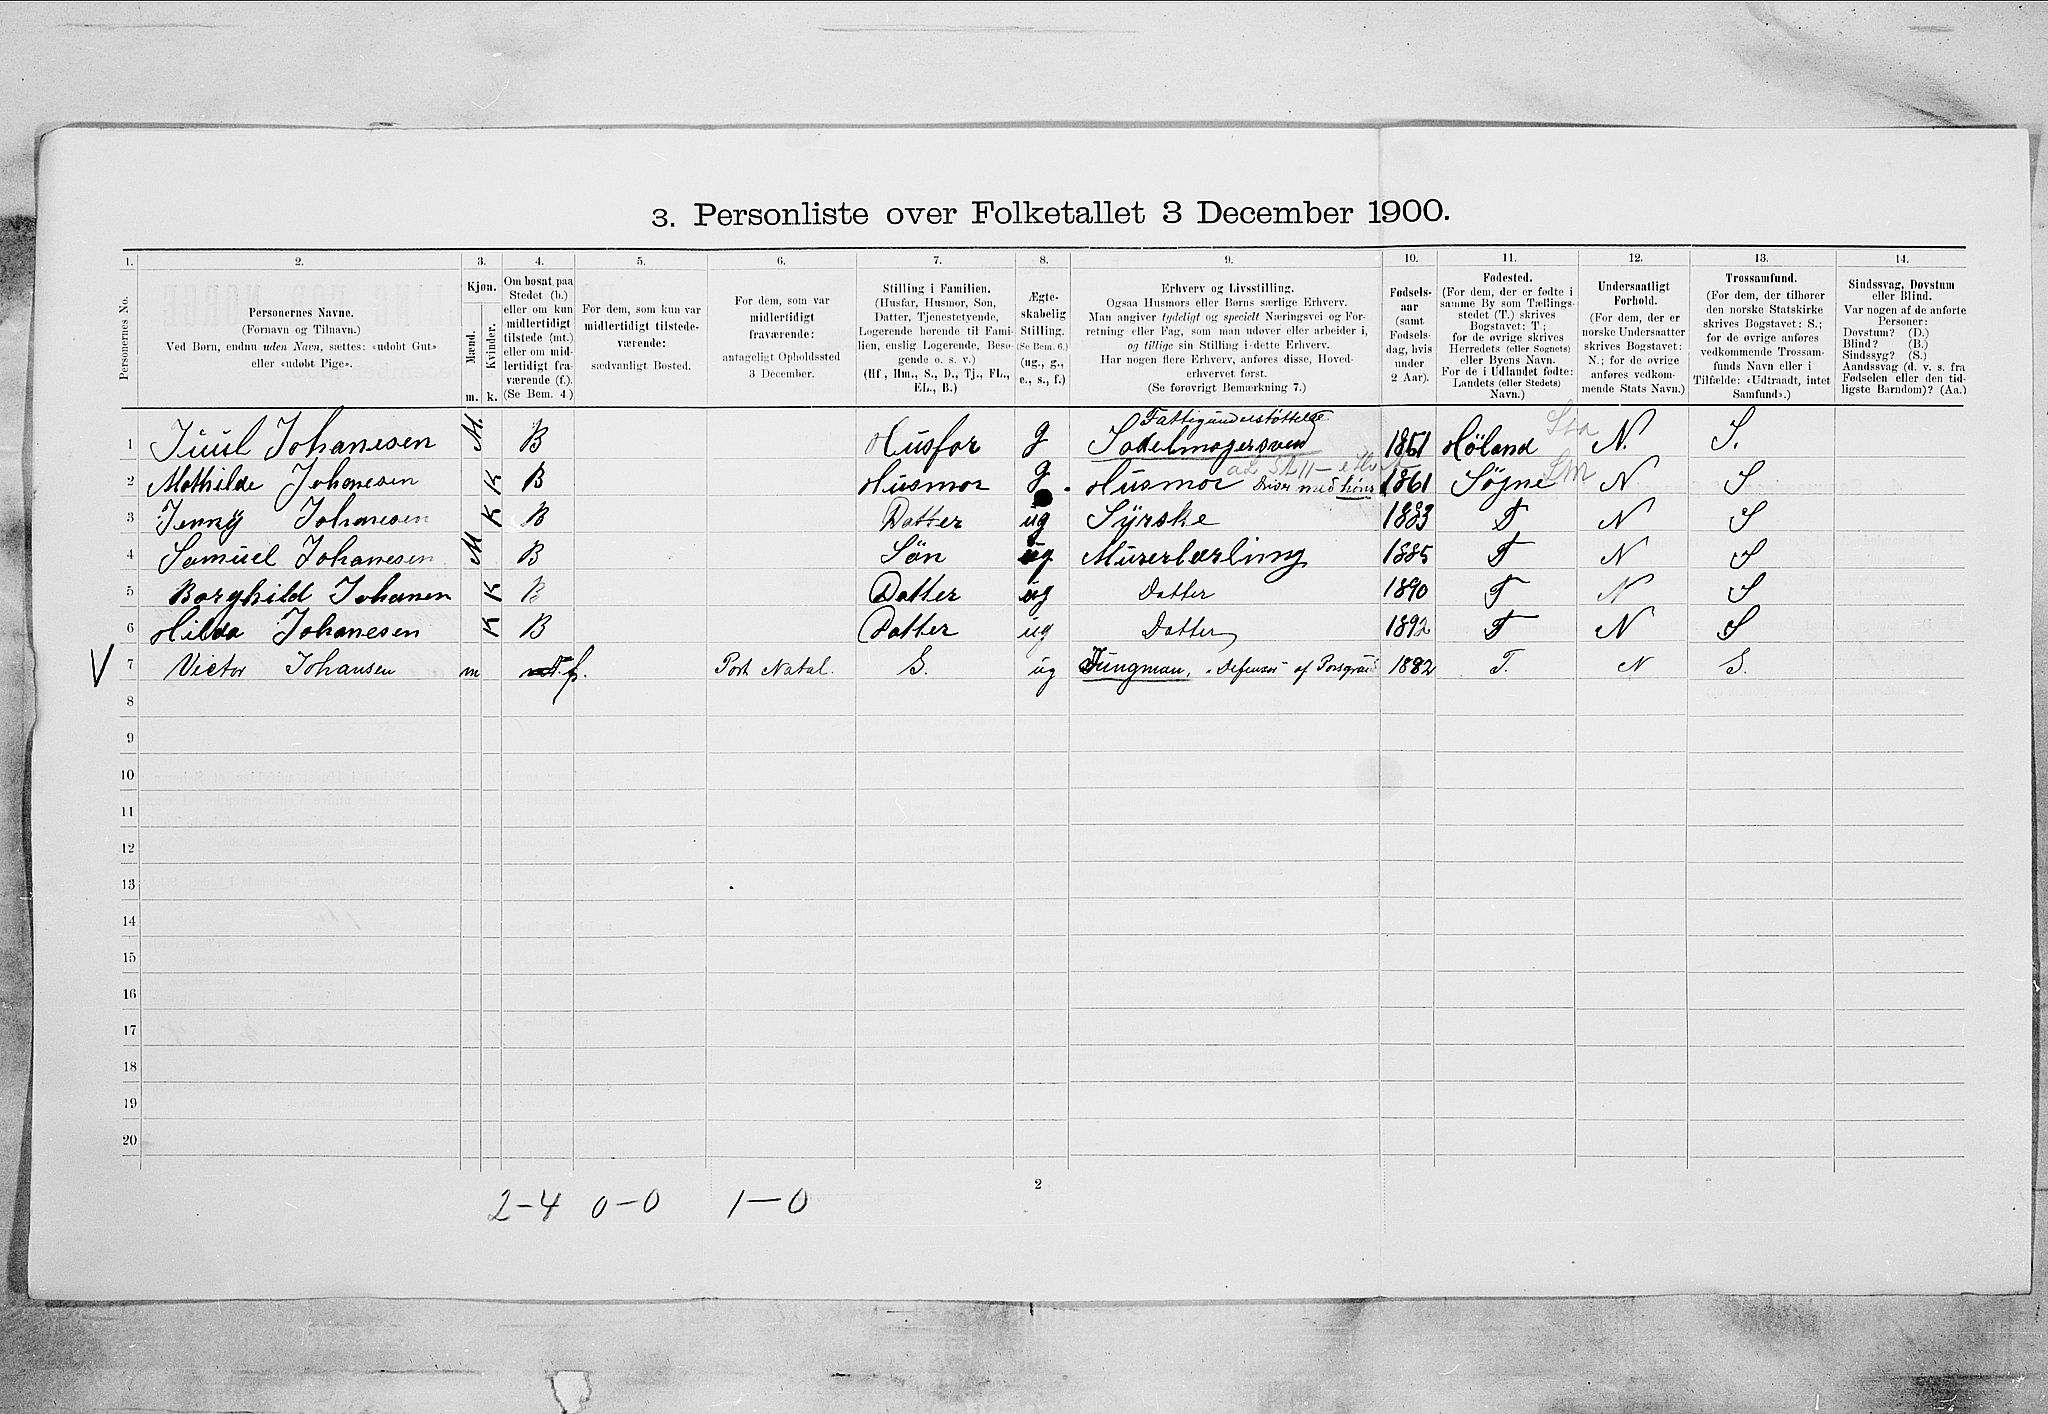 3. Personliste over Folketallet 3 December 1900.
1. 2. 3. 4. 5. 6. 7. 8. 9. 10. 11. 12. 13. 14.
Personernes No.
Personernes Navne.
(Fornavn og Tilnavn.)
Ved Børn, endnu uden Navn, sættes: «udøbt Gut»
eller «udøbt Pige».
Kjøn.
Mænd.
Kvinder.
m. k.
Om bosat paa
Stedet (b.)
eller om kun
midlertidigt
tilstede (mt.)
eller om mid-
lertidigt fra-
værende (f.).
(Se Bem. 4)
For dem, som kun var
midlertidigt tilstede-
værende:
sædvanligt Bosted.
For dem, som var
midlertidigt
fraværende:
antageligt Opholdssted
3 December.
Stilling i Familien.
(Husfar, Husmor, Søn,
Datter, Tjenestetyende,
Logerende hørende til Fami-
lien, enslig Logerende, Besø-
gende o. s. v.)
(Hf, Hm., S., D., Tj., FL.,
EL., B.)
Ægte-
skabelig
Stilling.
(Se Bem. 6.)
(ug., g.,
e., s., f.)
Erhverv og Livsstilling.
Ogsaa Husmors eller Børns særlige Erhverv.
Man angiver tydeligt og specielt Næringsvei og For-
retning eller Fag, som man udøver eller arbeider i,
og tillige sin Stilling i dette Erhverv.
Har nogen flere Erhverv, anføres disse, Hoved-
erhvervet først.
(Se forøvrigt Bemærkning 7.)
Fødsels-
aar
(samt
Fødsels-
dag, hvis
under
2 Aar).
Fødested.
(For dem, der er fødte i
samme By som Tællings-
stedet (T.) skrives
Bogstavet: T.;
for de øvrige skrives
Herredets (eller Sognets)
eller Byens Navn.
For de i Udlandet fødte:
Landets (eller Stedets)
Navn.)
Undersaatligt
Forhold.
(For dem, der er
norske Undersaatter
skrives Bogstavet:
N.; for de øvrige
anføres vedkom-
mende Stats Navn.)
Trossamfund.
(For dem, der tilhører
den norske Statskirke
skrives Bogstavet: S.;
for de øvrige anføres
vedkommende Trossam-
funds Navn eller i
Tilfælde: «Udtraadt, intet
Samfund».)
Sindssvag, Døvstum
eller Blind.
Var nogen af de anførte
Personer:
Døvstum? (D.)
Blind? (B.)
Sindssyg? (S.)
Aandssvag (d. v. s. fra
Fødselen eller den tid-
ligste Barndom)? (Aa.)
Fattigunderstøttelse
1 Juul Johanesen M. B Husfar g Sadelmagersvend 1861 Høland N. S.
2 Mathilde Johanesen K B Husmor g. Husmor Driver med høns 1861 Søgne N S
3 Jenny Johanesen K B Datter ug Syrske 1883 T N S
4 Samuel Johanesen M B Søn ug Murerlærling 1885 T N S
5 Borghild Johanen K B Datter ug Datter 1890 T N S
6 Hilda Johanesen K B Datter ug Datter 1892 T N S
V 7 Victor Johansen m f. Port Natal. S. ug Jungman, "Defensor" af Porsgrund 1882 T. N S.
8
9
10
11
12
13
14
15
16
17
18
19
20
2
2-4 0-0 1-0